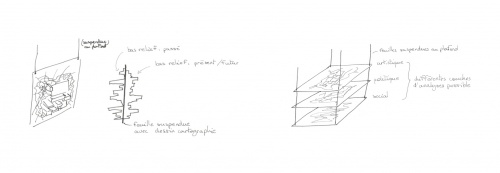 (suspendue
au plafond)
bas relief. passé
bas relief, présent/futur
feuille suspendue
avec dessin cartographie
feuilles suspendue au plafond
artistique
politique
social
différentes couches
d'analyses possible